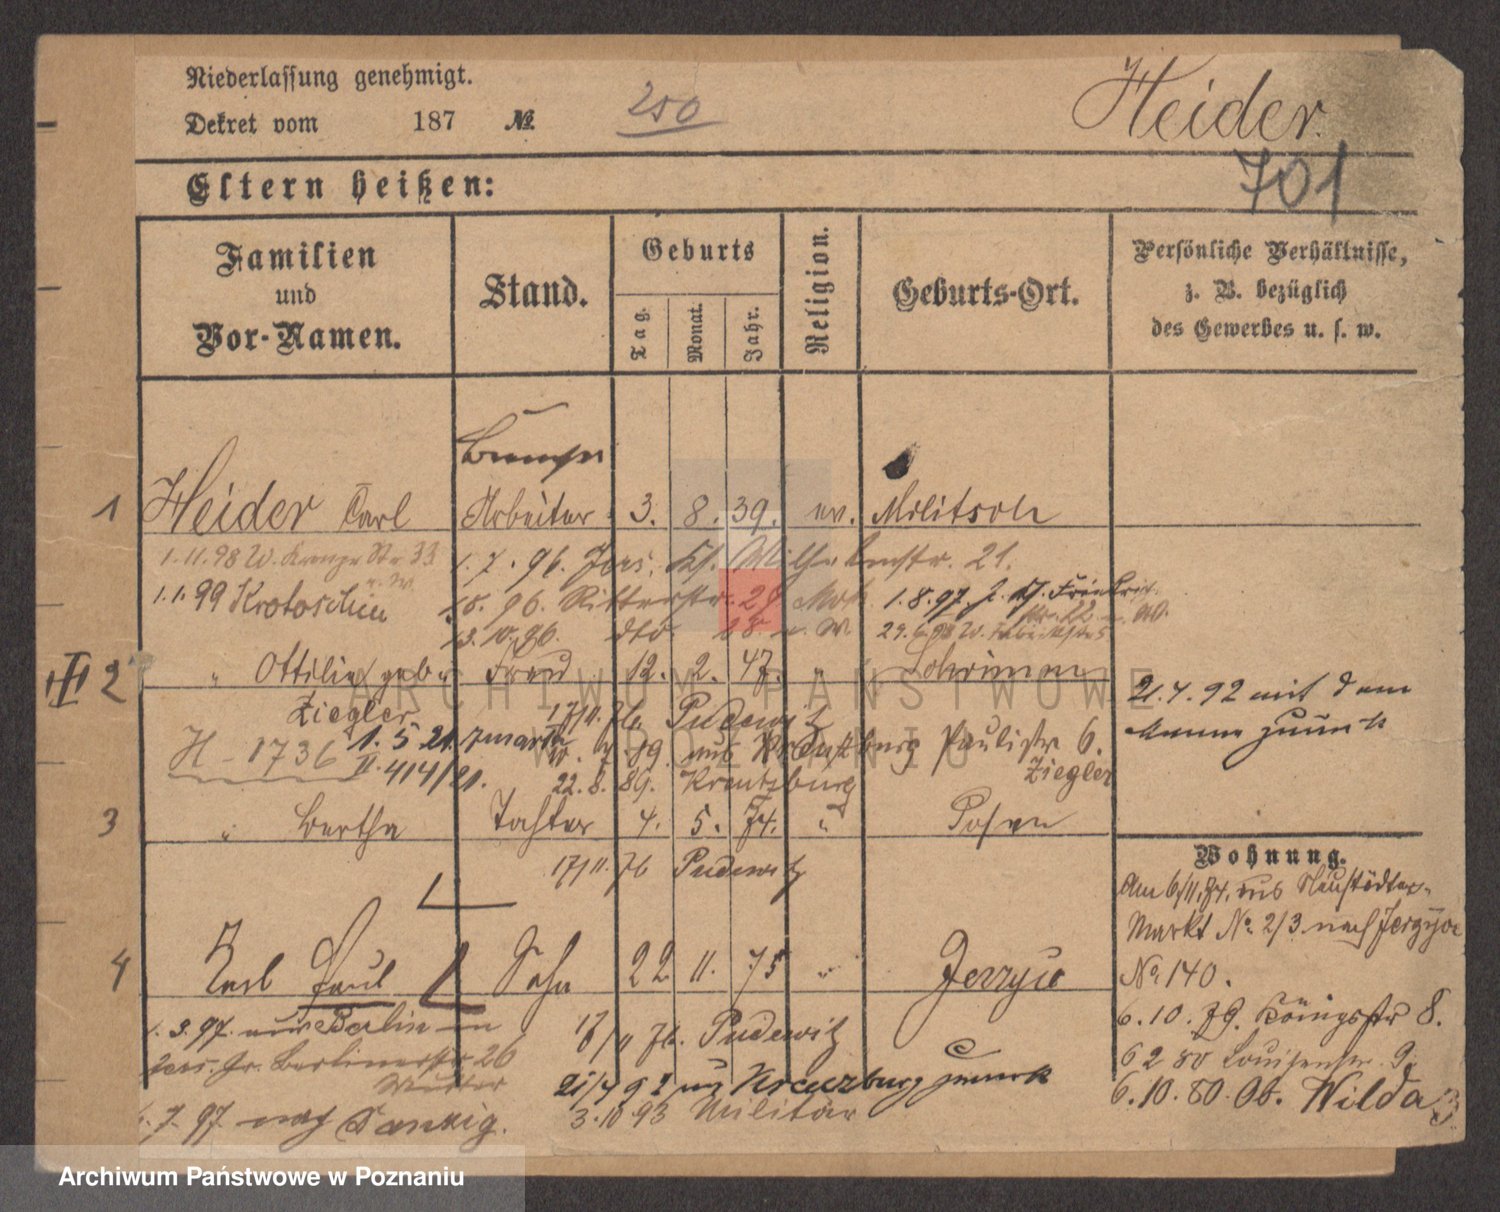 Niederlassung genehmigt.
Dekret vom 187 № 250
Heider.
701
Eltern heißen:
Familien
und
Vor-Namen.
Stand.
Geburts
Tag.
Monat.
Jahr.
Religion.
Geburts-Ort.
Persönliche Verhältnisse,
z. B. bezüglich
des Gewerbes u. s. w.
1 Heider Carl Arbeiter 3. 8. 39. ev. Militsch
1.11.98 W. Str 33
1.7.96. Jers. Kl. Wilhelmstr. 21.
1.1.99 Krotoschin
96. Ritterstr. 1.8.97
3.10.96. dto 28
III 2 " Ottilie geb. Frau 12. 2. 47. "
Ziegler
17/11. 76 Pudewitz
21.4.92 mit dem
Manne zurück
H - 1736 1.5.21.
89. aus Kreutzburg Paulistr 6.
Ziegler
II. 414/21. 22.8.89. Kreutzburg
3 " Bertha Tochter 4. 5. 74. " Posen
17/11. 76 Pudewitz
Wohnung.
Am 6/11.74. aus Neustädter-
Markt No. 2/3 nach Jerzyce
No. 140.
4 Karl Paul Sohn 22 11. 75 " Jerzyce
6.10.79. Königsstr 8.
1.3.97. aus Berlin
17/11 76. Pudewitz
6 2 80 Louisenstr. 9.
Jers. Gr. Berlinerstr. 26
Mutter
21/4 92 Kreuzburg zurück
6.10.80. Ob. Wilda 3
7.97 nach Danzig.
3.10.93 Militär
ARCHIWUM PAŃSTWOWE
W POZNANIU
Archiwum Państwowe w Poznaniu